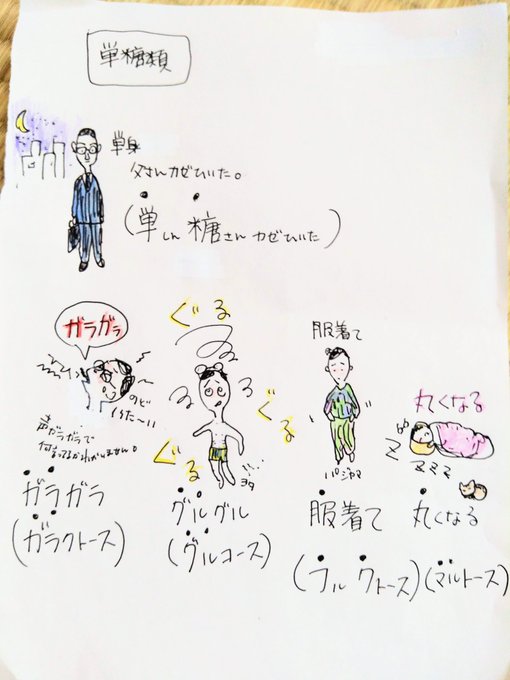 単糖類
単身
父さんカゼひいた。
(単しん 糖さん カゼひいた)
ガラガラ
のど
いた〜い
声ガラガラで
何言ってるかわかりません。
ガラガラ
(ガラクトース)
ぐる
ぐる
ぐる
ヨタ
グルグル
(グルコース)
服着て
パジャマ
服着て
(フルクトース)
丸くなる
ZZZ
丸くなる
(マルトース)